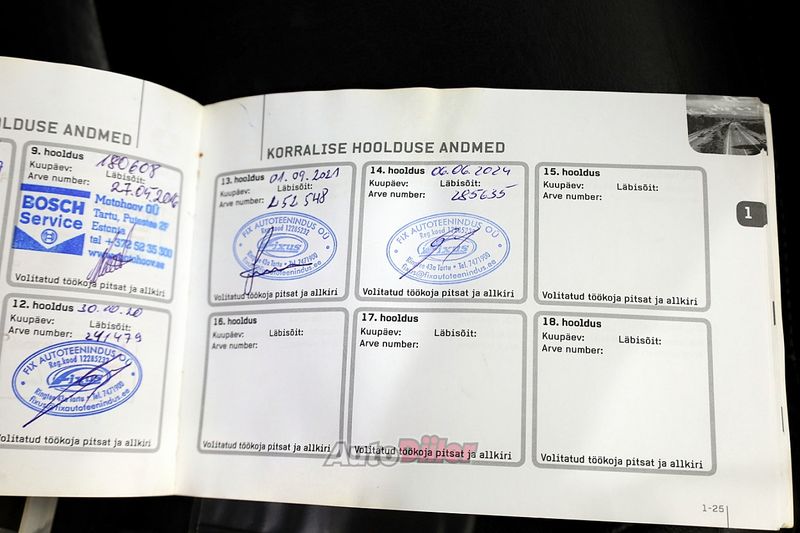 LDUSE ANDMED
9. hooldus 180608
Kuupäev: Läbisõit:
Arve number: 27.04.2016
BOSCH
Service
Motohoov OÜ
Tartu, Puiestee 2F
Estonia
tel +372 52 35 300
www.motohoov.ee
Volitatud töökoja pitsat ja allkiri
12. hooldus 30.10.20
Kuupäev: Läbisõit:
Arve number: 241479
FIX AUTOTEENINDUS OÜ
Reg.kood 12285232
Fixus
Ringtee 43a Tartu • Tel. 7471900
fixus@fixautoteenindus.ee
Volitatud töökoja pitsat ja allkiri
KORRALISE HOOLDUSE ANDMED
13. hooldus 01.09.2021
Kuupäev: Läbisõit:
Arve number: 252548
FIX AUTOTEENINDUS OÜ
Reg.kood 12285232
Fixus
Ringtee 43a Tartu • Tel. 7471900
fixus@fixautoteenindus.ee
Volitatud töökoja pitsat ja allkiri
14. hooldus 06.06.2024
Kuupäev: Läbisõit:
Arve number: 285635
FIX AUTOTEENINDUS OÜ
Reg.kood 12285232
Fixus
Ringtee 43a Tartu • Tel. 7471900
fixus@fixautoteenindus.ee
Volitatud töökoja pitsat ja allkiri
15. hooldus
Kuupäev: Läbisõit:
Arve number:
Volitatud töökoja pitsat ja allkiri
1
16. hooldus
Kuupäev: Läbisõit:
Arve number:
Volitatud töökoja pitsat ja allkiri
17. hooldus
Kuupäev: Läbisõit:
Arve number:
Volitatud töökoja pitsat ja allkiri
18. hooldus
Kuupäev: Läbisõit:
Arve number:
Volitatud töökoja pitsat ja allkiri
AutoDiiler
1-25